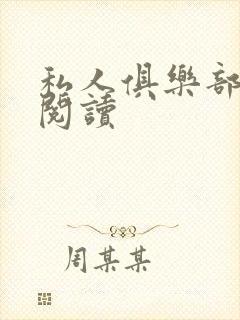 私人俱樂部
閱讀
周某某